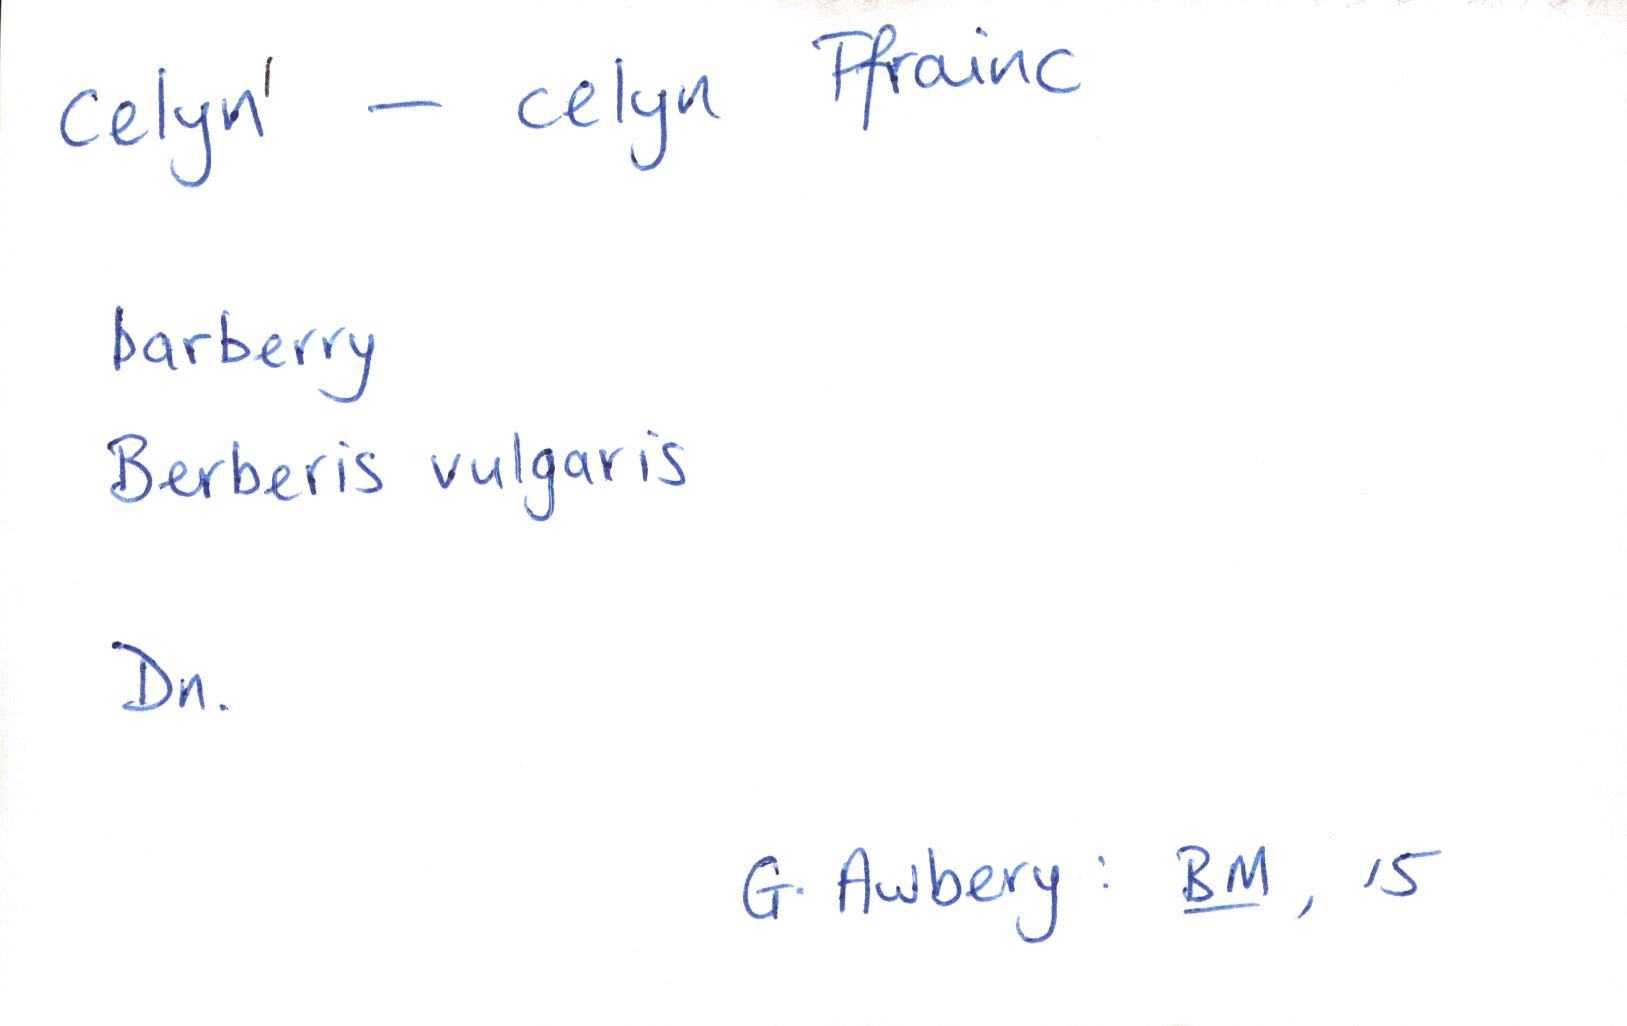 Celyn¹ — celyn Ffrainc
barberry
Berberis vulgaris
Dn.
G. Awbery : BM, 15